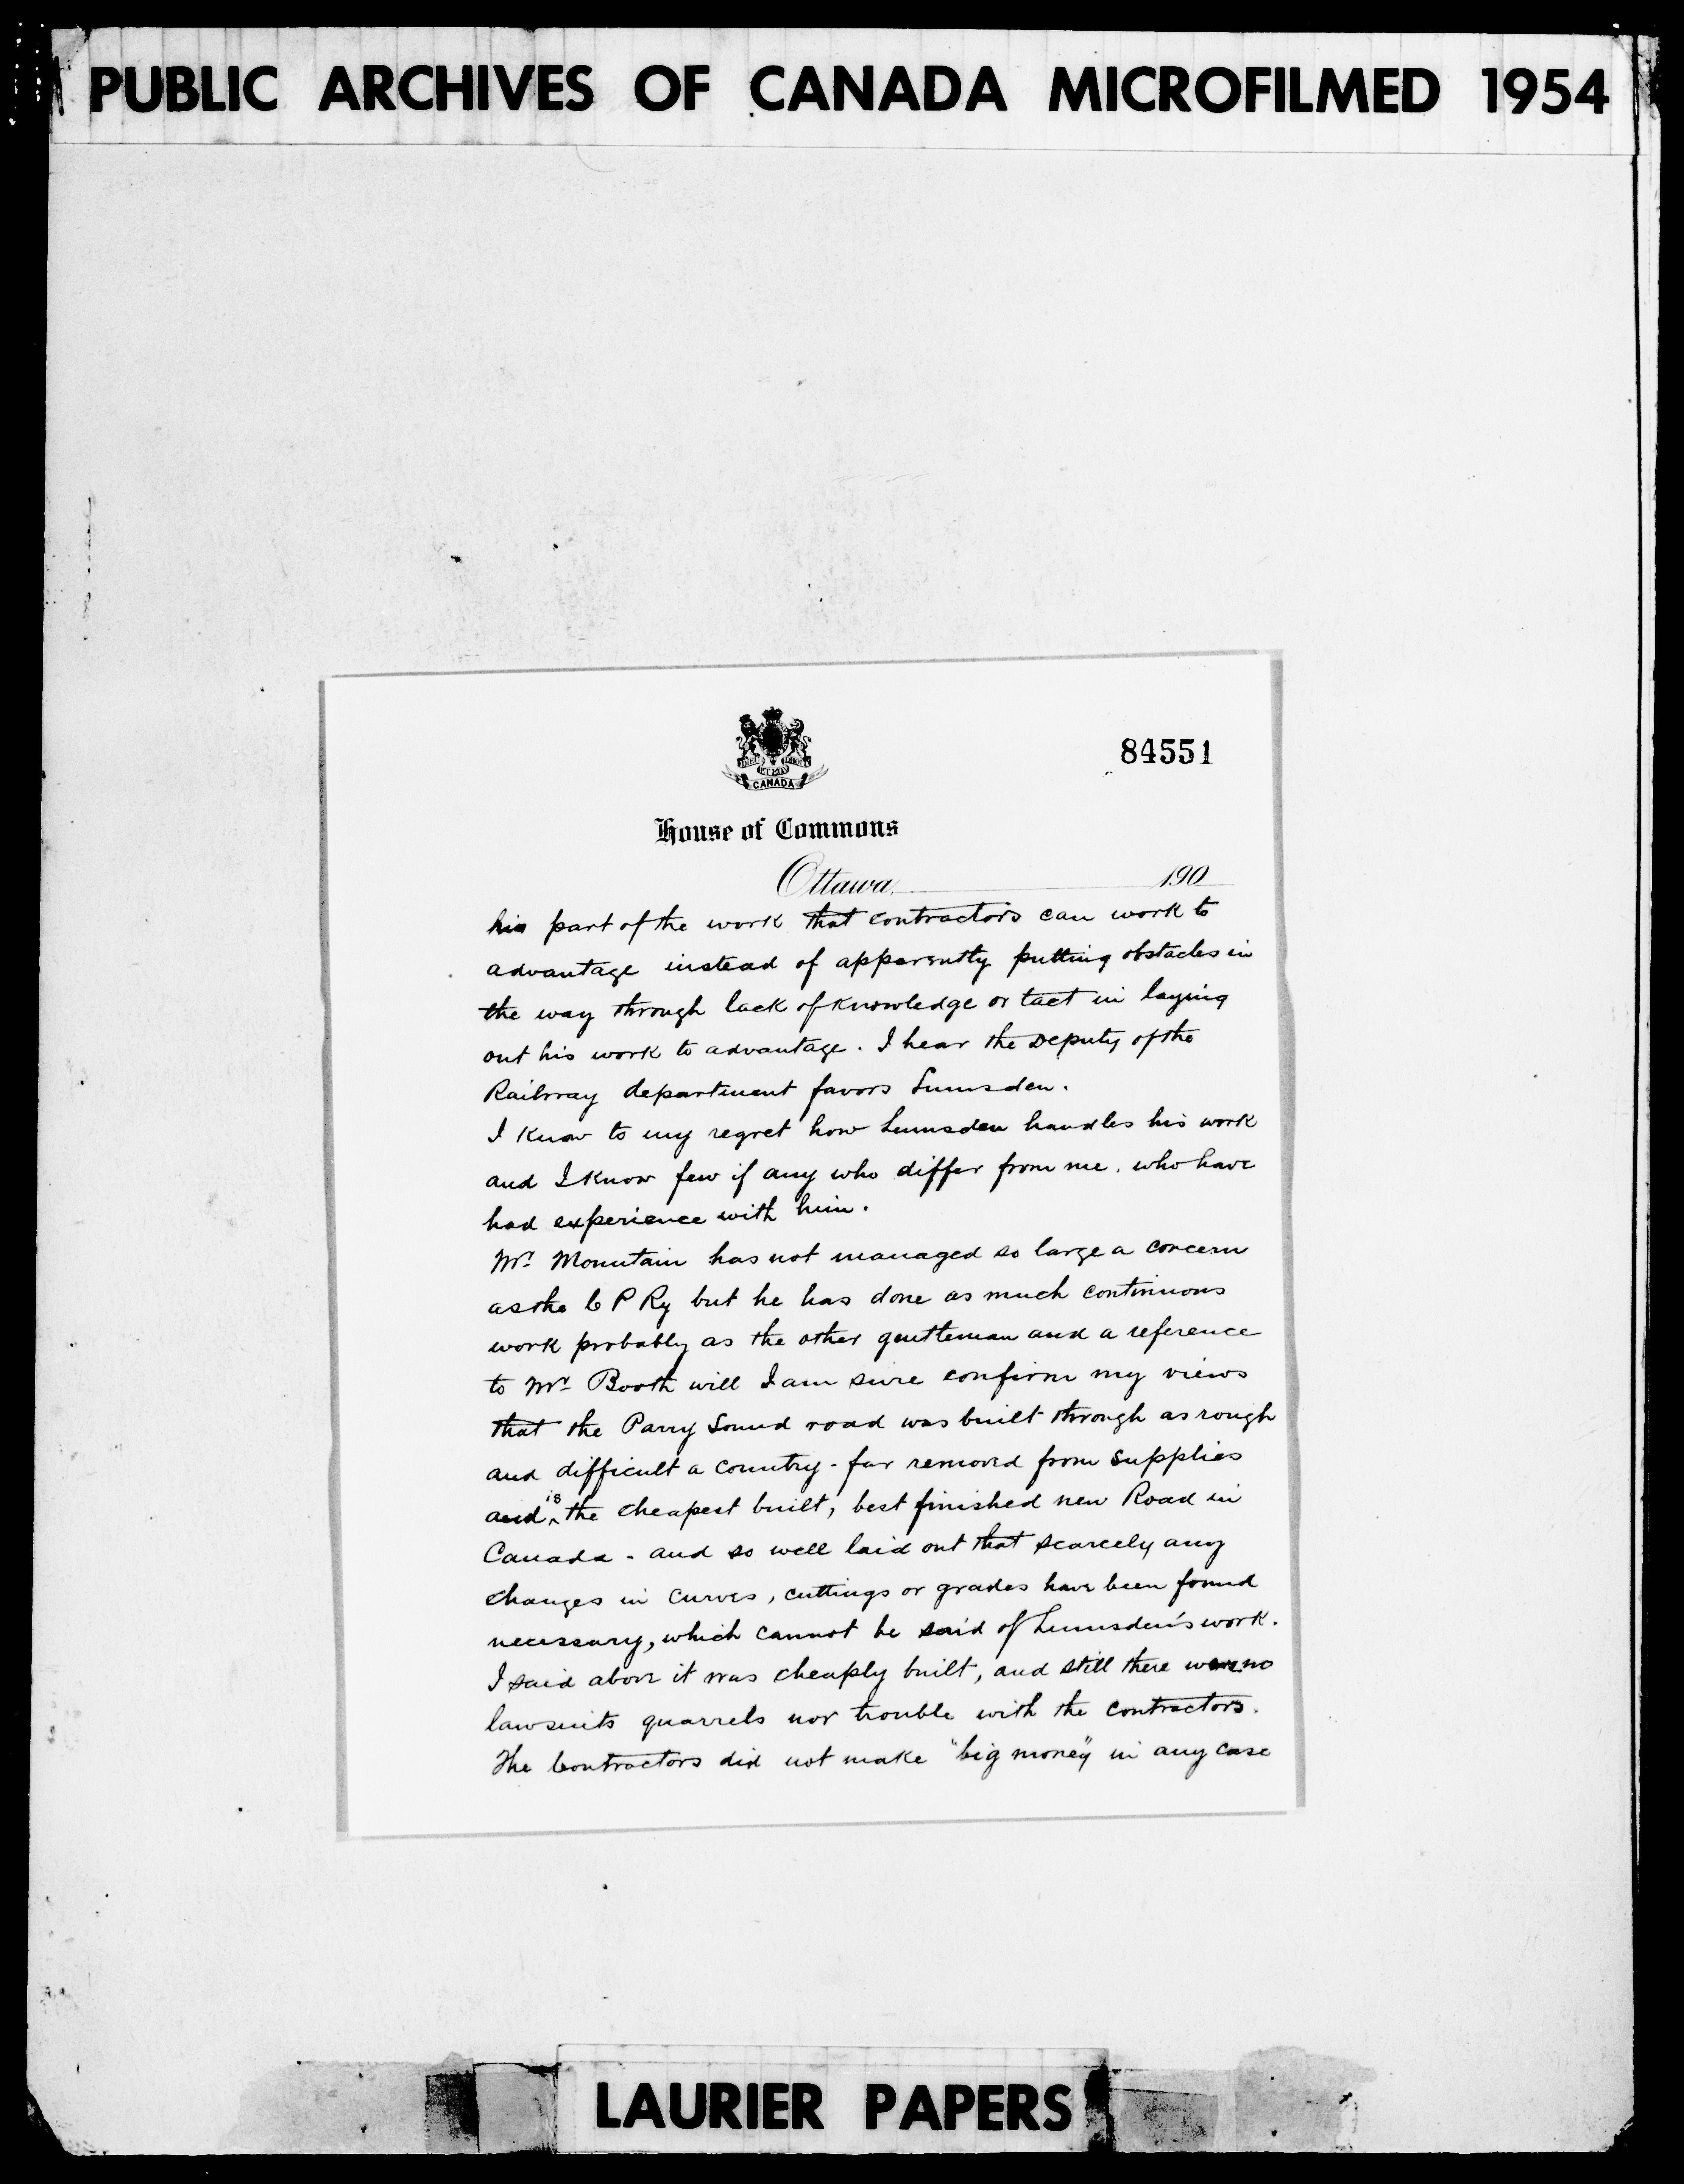 PUBLIC ARCHIVES OF CANADA MICROFILMED 1954
84551
CANADA
House of Commons
Ottawa, 190
his part of the work that contractors can work to
advantage instead of apparently putting obstacles in
the way through lack of knowledge or tact in laying
out his work to advantage. I hear the Deputy of the
Railway department favors Lumsden.
I know to my regret how Lumsden handles his work
and I know few if any who differ from me, who have
had experience with him.
Mr. Mountain has not managed so large a concern
as the C P Ry but he has done as much continuous
work probably as the other gentleman and a reference
to Mr. Booth will I am sure confirm my views
that the Parry Sound road was built through as rough
and difficult a country - far removed from supplies
and is the cheapest built, best finished new Road in
Canada - and so well laid out that scarcely any
changes in curves, cuttings or grades have been found
necessary, which cannot be said of Lumsden's work.
I said above it was cheaply built, and still there were no
lawsuits quarrels nor trouble with the contractors.
The Contractors did not make "big money" in any case
LAURIER PAPERS